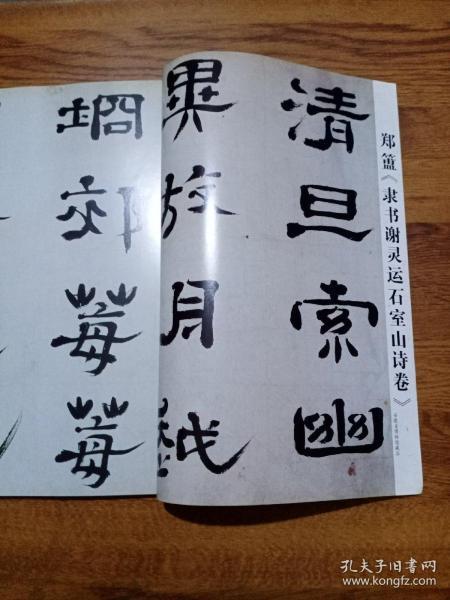 郑簠《隶书谢灵运石室山诗卷》
清旦索幽
異放舟越
坰郊莓莓
孔夫子旧书网
www.kongfz.com